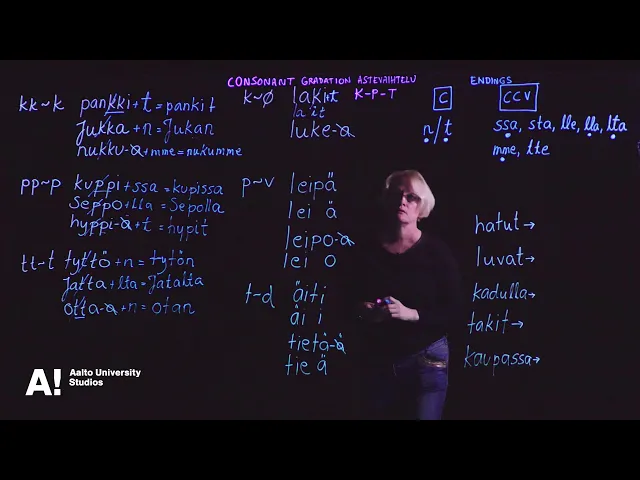 CONSONANT GRADATION ASTEVAIHTELU
K-P-T
ENDINGS
C
CCV
n/t
ssa, sta, lle, lla, lta
mme, tte
kk~k
pankki+t = pankit
Jukka+n = Jukan
nukku-a+mme = nukumme
pp~p
kuppi+ssa = kupissa
Seppo+lla = Sepolla
hyppi-ä+t = hypit
tt-t
tyttö+n = tytön
Jatta+lta = Jatalta
otta-a+n = otan
k~ø
laki+t
la it
luke-a
p~v
leipä
lei ä
leipo-a
lei o
t-d
äiti
äi i
tietä-ä
tie ä
hatut→
luvat→
kadulla→
takit→
kaupassa→
A! Aalto University
Studios